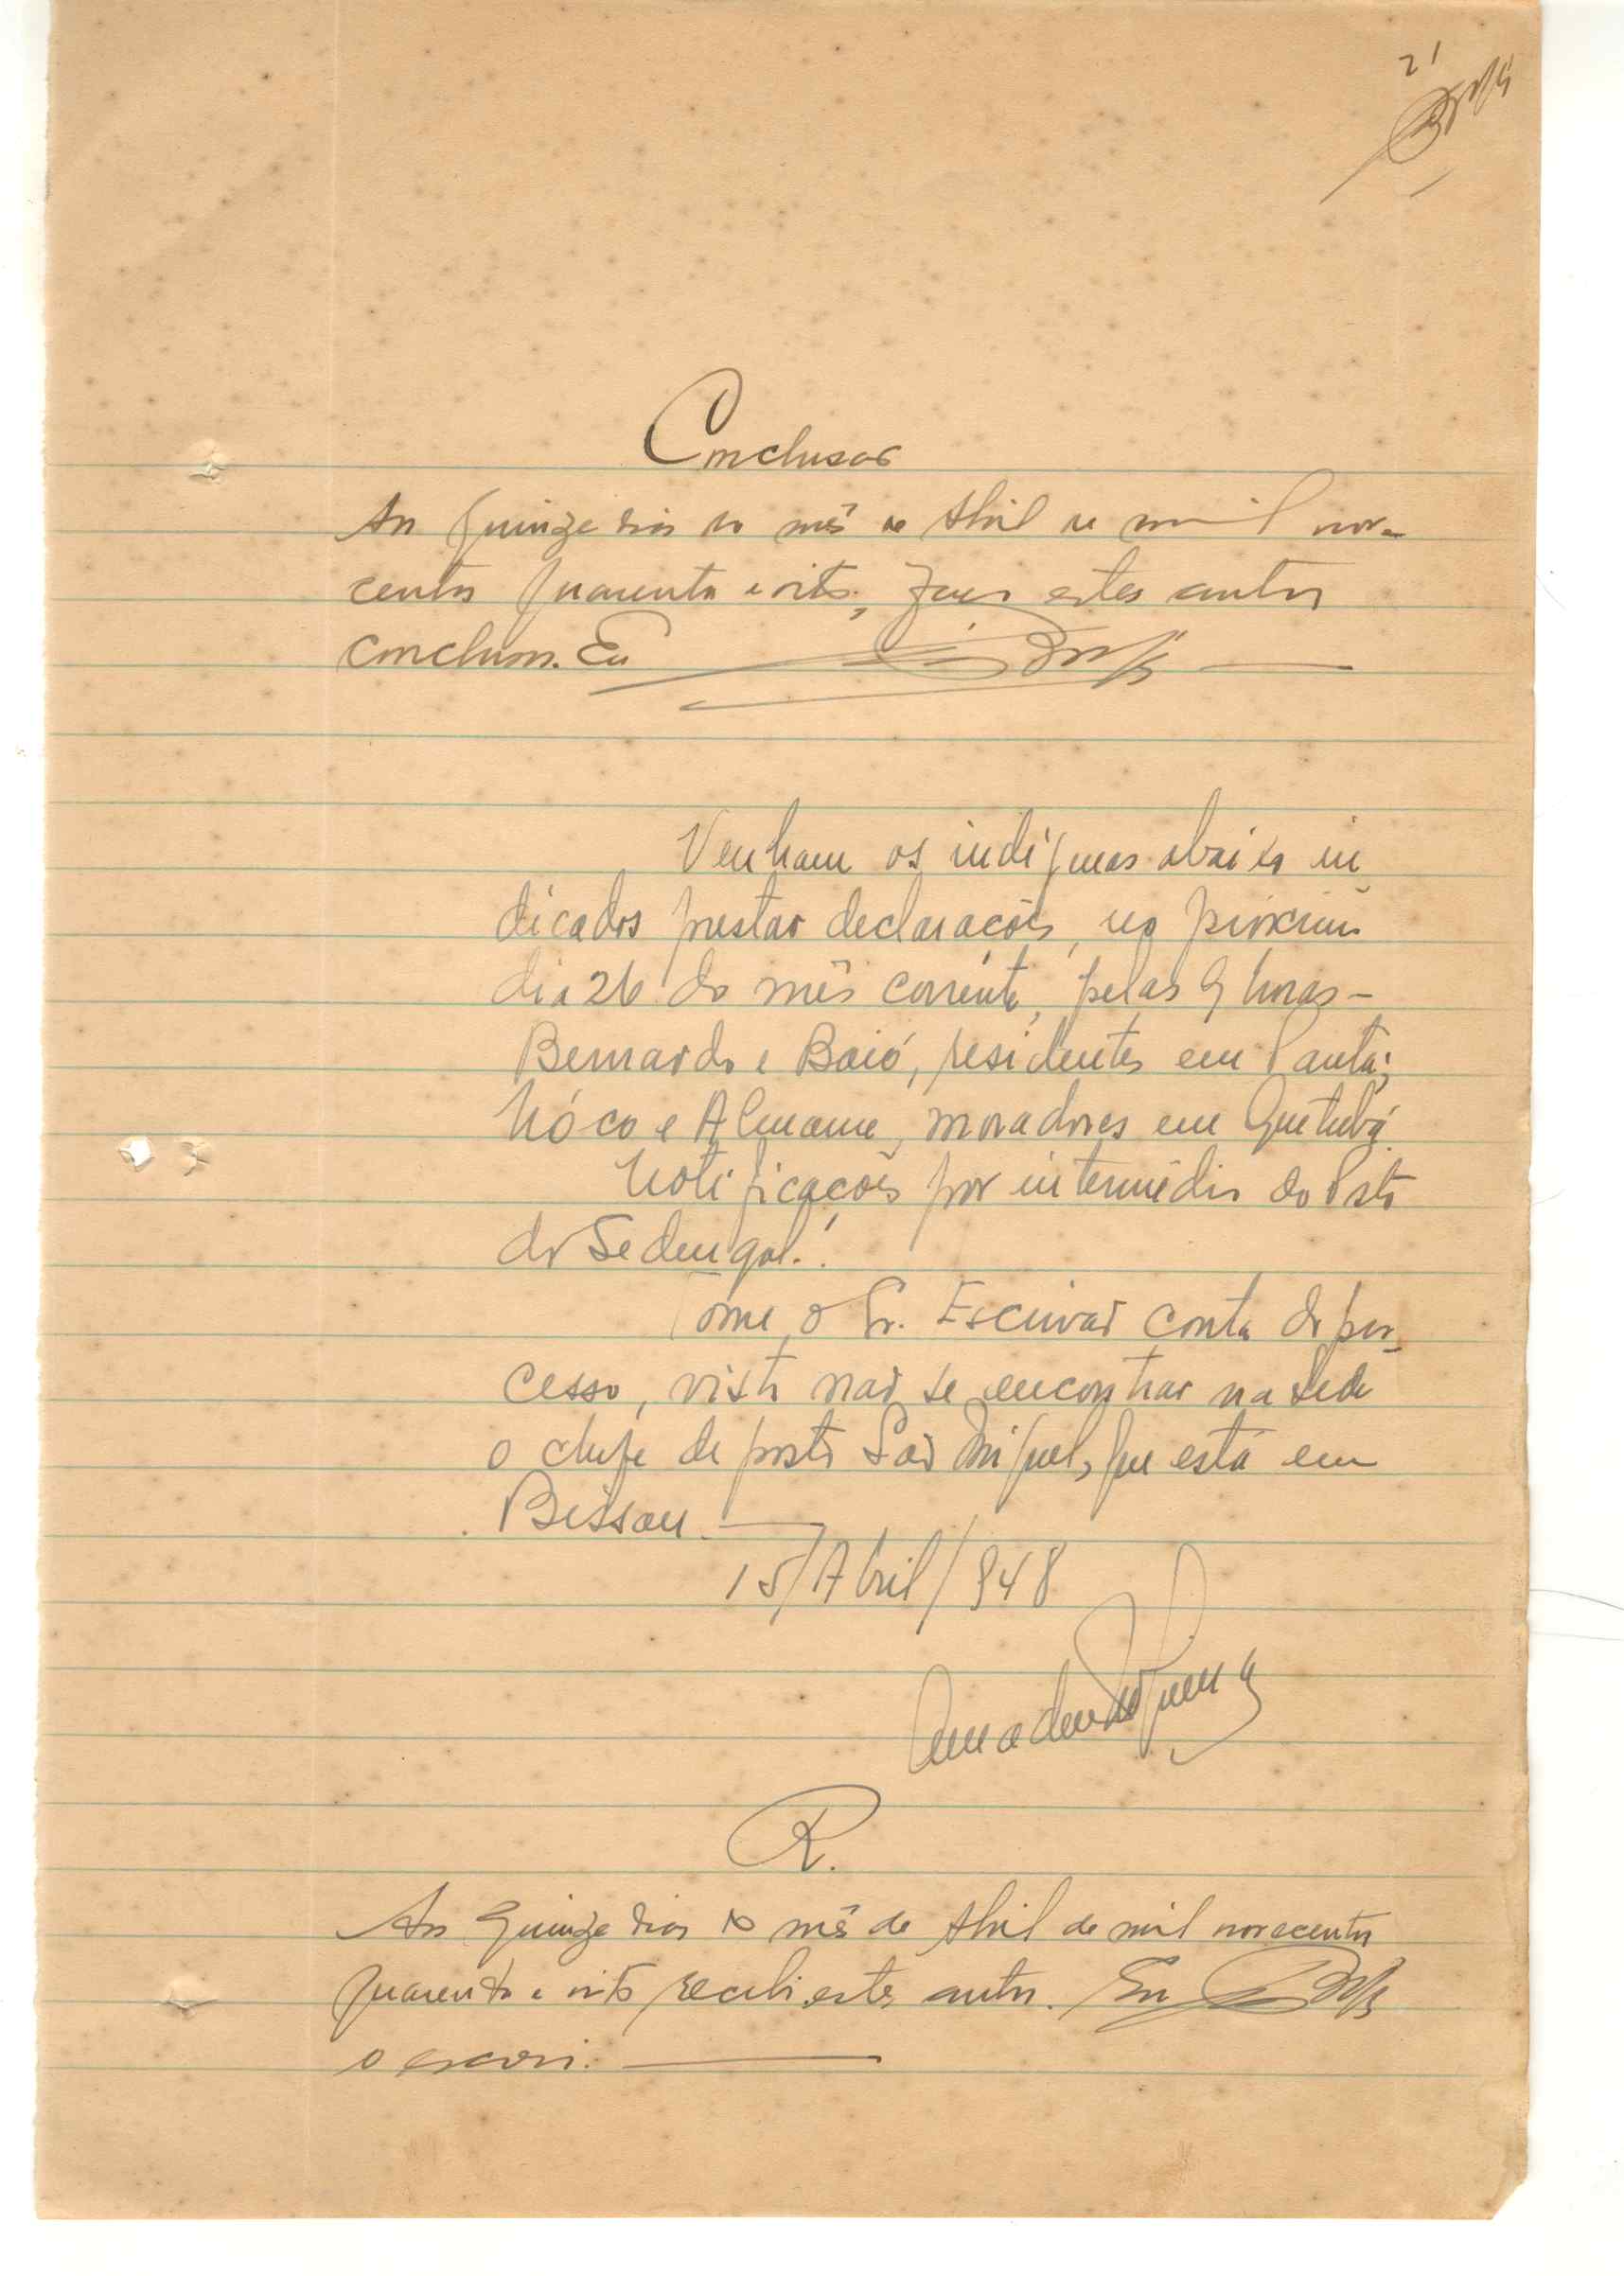 21
Conclusão
Aos quinze dias do mês de Abril de mil nove-
centos quarenta e oito, faço estes autos
conclusos. Eu
Venham os indígenas abaixo in
dicados prestar declarações, no próximo
dia 26 do mês corrente, pelas 9 horas –
Bernardo e Baió, residentes em Panta;
Nóco e Almame, moradores em Quetubá.
Notificações por intermédio do Posto
do Sedengal.
Tome o Sr. Escrivão conta do pro-
cesso, visto não se encontrar na Sede
o chefe de posto São Miguel, que está em
Bissau.
15/Abril/948
R.
Aos quinze dias do mês de Abril de mil novecentos
quarenta e oito recebi estes autos. Eu
o escrevi.